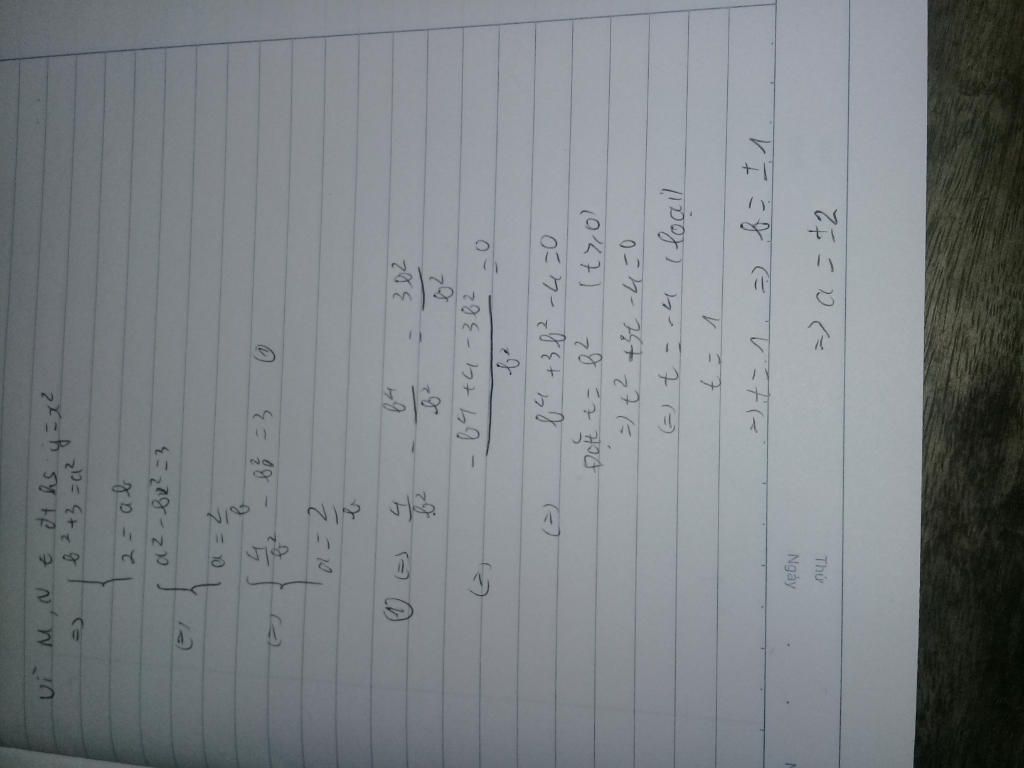 Vì M, N ∈ đt hs y = x²
=> { b² + 3 = a²
2 = ab
(=) { a² - b² = 3
a = 2/b
(=) { 4/b² - b² = 3 (1)
a = 2/b
(1) (=) 4/b² - b⁴/b² = 3b²/b²
(=) (-b⁴ + 4 - 3b²)/b² = 0
(=) b⁴ + 3b² - 4 = 0
Đặt t = b² (t ≥ 0)
=) t² + 3t - 4 = 0
(=) t = -4 (loại)
t = 1
=) t = 1 => b = ± 1
=) a = ±2
Thứ
Ngày